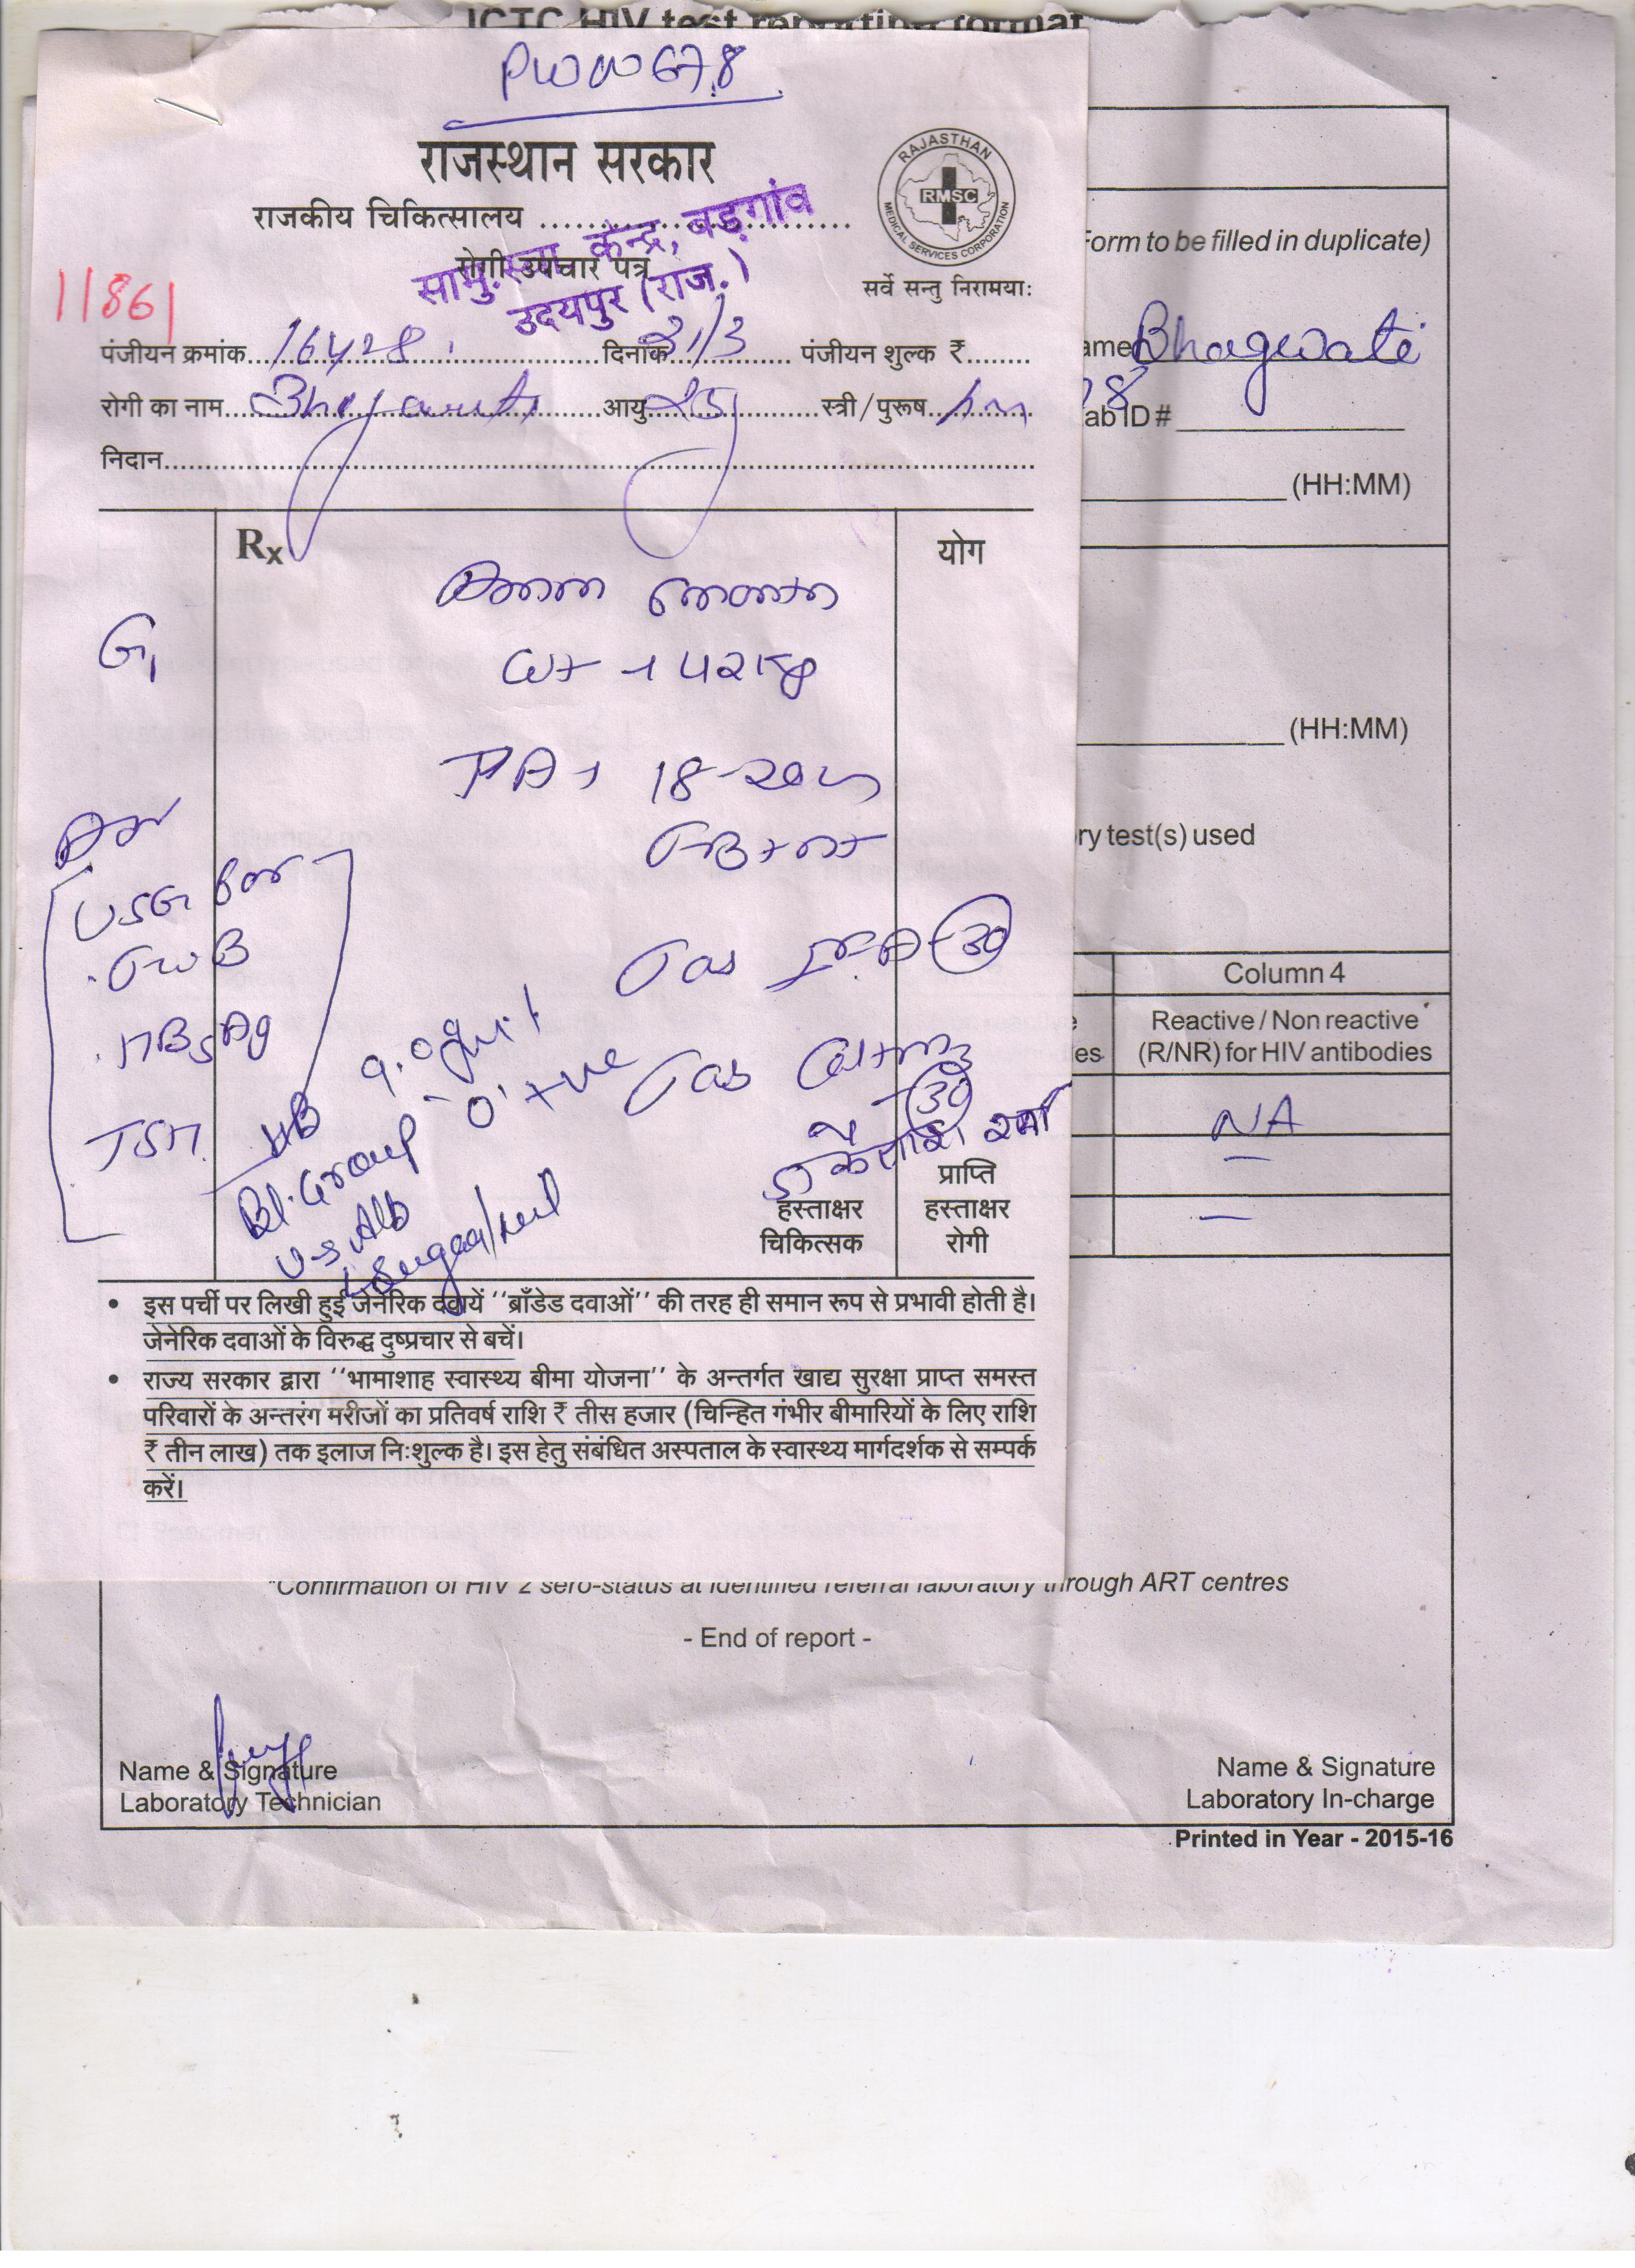 ICTC HIV test reporting format
PWW 678
राजस्थान सरकार
राजकीय चिकित्सालय
सामु. स्वा. केन्द्र, बड़गांव
उदयपुर (राज.)
रोगी उपचार पत्र
RAJASTHAN
RMSC
MEDICAL SERVICES CORPORATION
सर्वे सन्तु निरामयाः
11861
पंजीयन क्रमांक 16428 दिनांक 21/3 पंजीयन शुल्क ₹
रोगी का नाम Bhagwati आयु 25 स्त्री/पुरूष
निदान
Rx
योग
G1
6 month
wt → 42 kg
PA → 18-20
USG for
HBsAg
TSH
Tas IFA 30
Tas
30
HB 9.0
Bl. Group - 'O' +ve
U-S Alb
Sugar/nil
डॉ कैलाश शर्मा
हस्ताक्षर
चिकित्सक
प्राप्ति
हस्ताक्षर
रोगी
• इस पर्ची पर लिखी हुई जेनेरिक दवायें ''ब्राँडेड दवाओं'' की तरह ही समान रूप से प्रभावी होती है।
जेनेरिक दवाओं के विरुद्ध दुष्प्रचार से बचें।
• राज्य सरकार द्वारा ''भामाशाह स्वास्थ्य बीमा योजना'' के अन्तर्गत खाद्य सुरक्षा प्राप्त समस्त
परिवारों के अन्तरंग मरीजों का प्रतिवर्ष राशि ₹ तीस हजार (चिन्हित गंभीर बीमारियों के लिए राशि
₹ तीन लाख) तक इलाज निःशुल्क है। इस हेतु संबंधित अस्पताल के स्वास्थ्य मार्गदर्शक से सम्पर्क
करें।
Form to be filled in duplicate)
ame Bhagwati
78
ab ID #
(HH:MM)
(HH:MM)
ry test(s) used
Column 4
Reactive / Non reactive
(R/NR) for HIV antibodies
es
NA
*Confirmation of HIV 2 sero-status at identified referral laboratory through ART centres
- End of report -
Name & Signature
Laboratory Technician
Name & Signature
Laboratory In-charge
Printed in Year - 2015-16